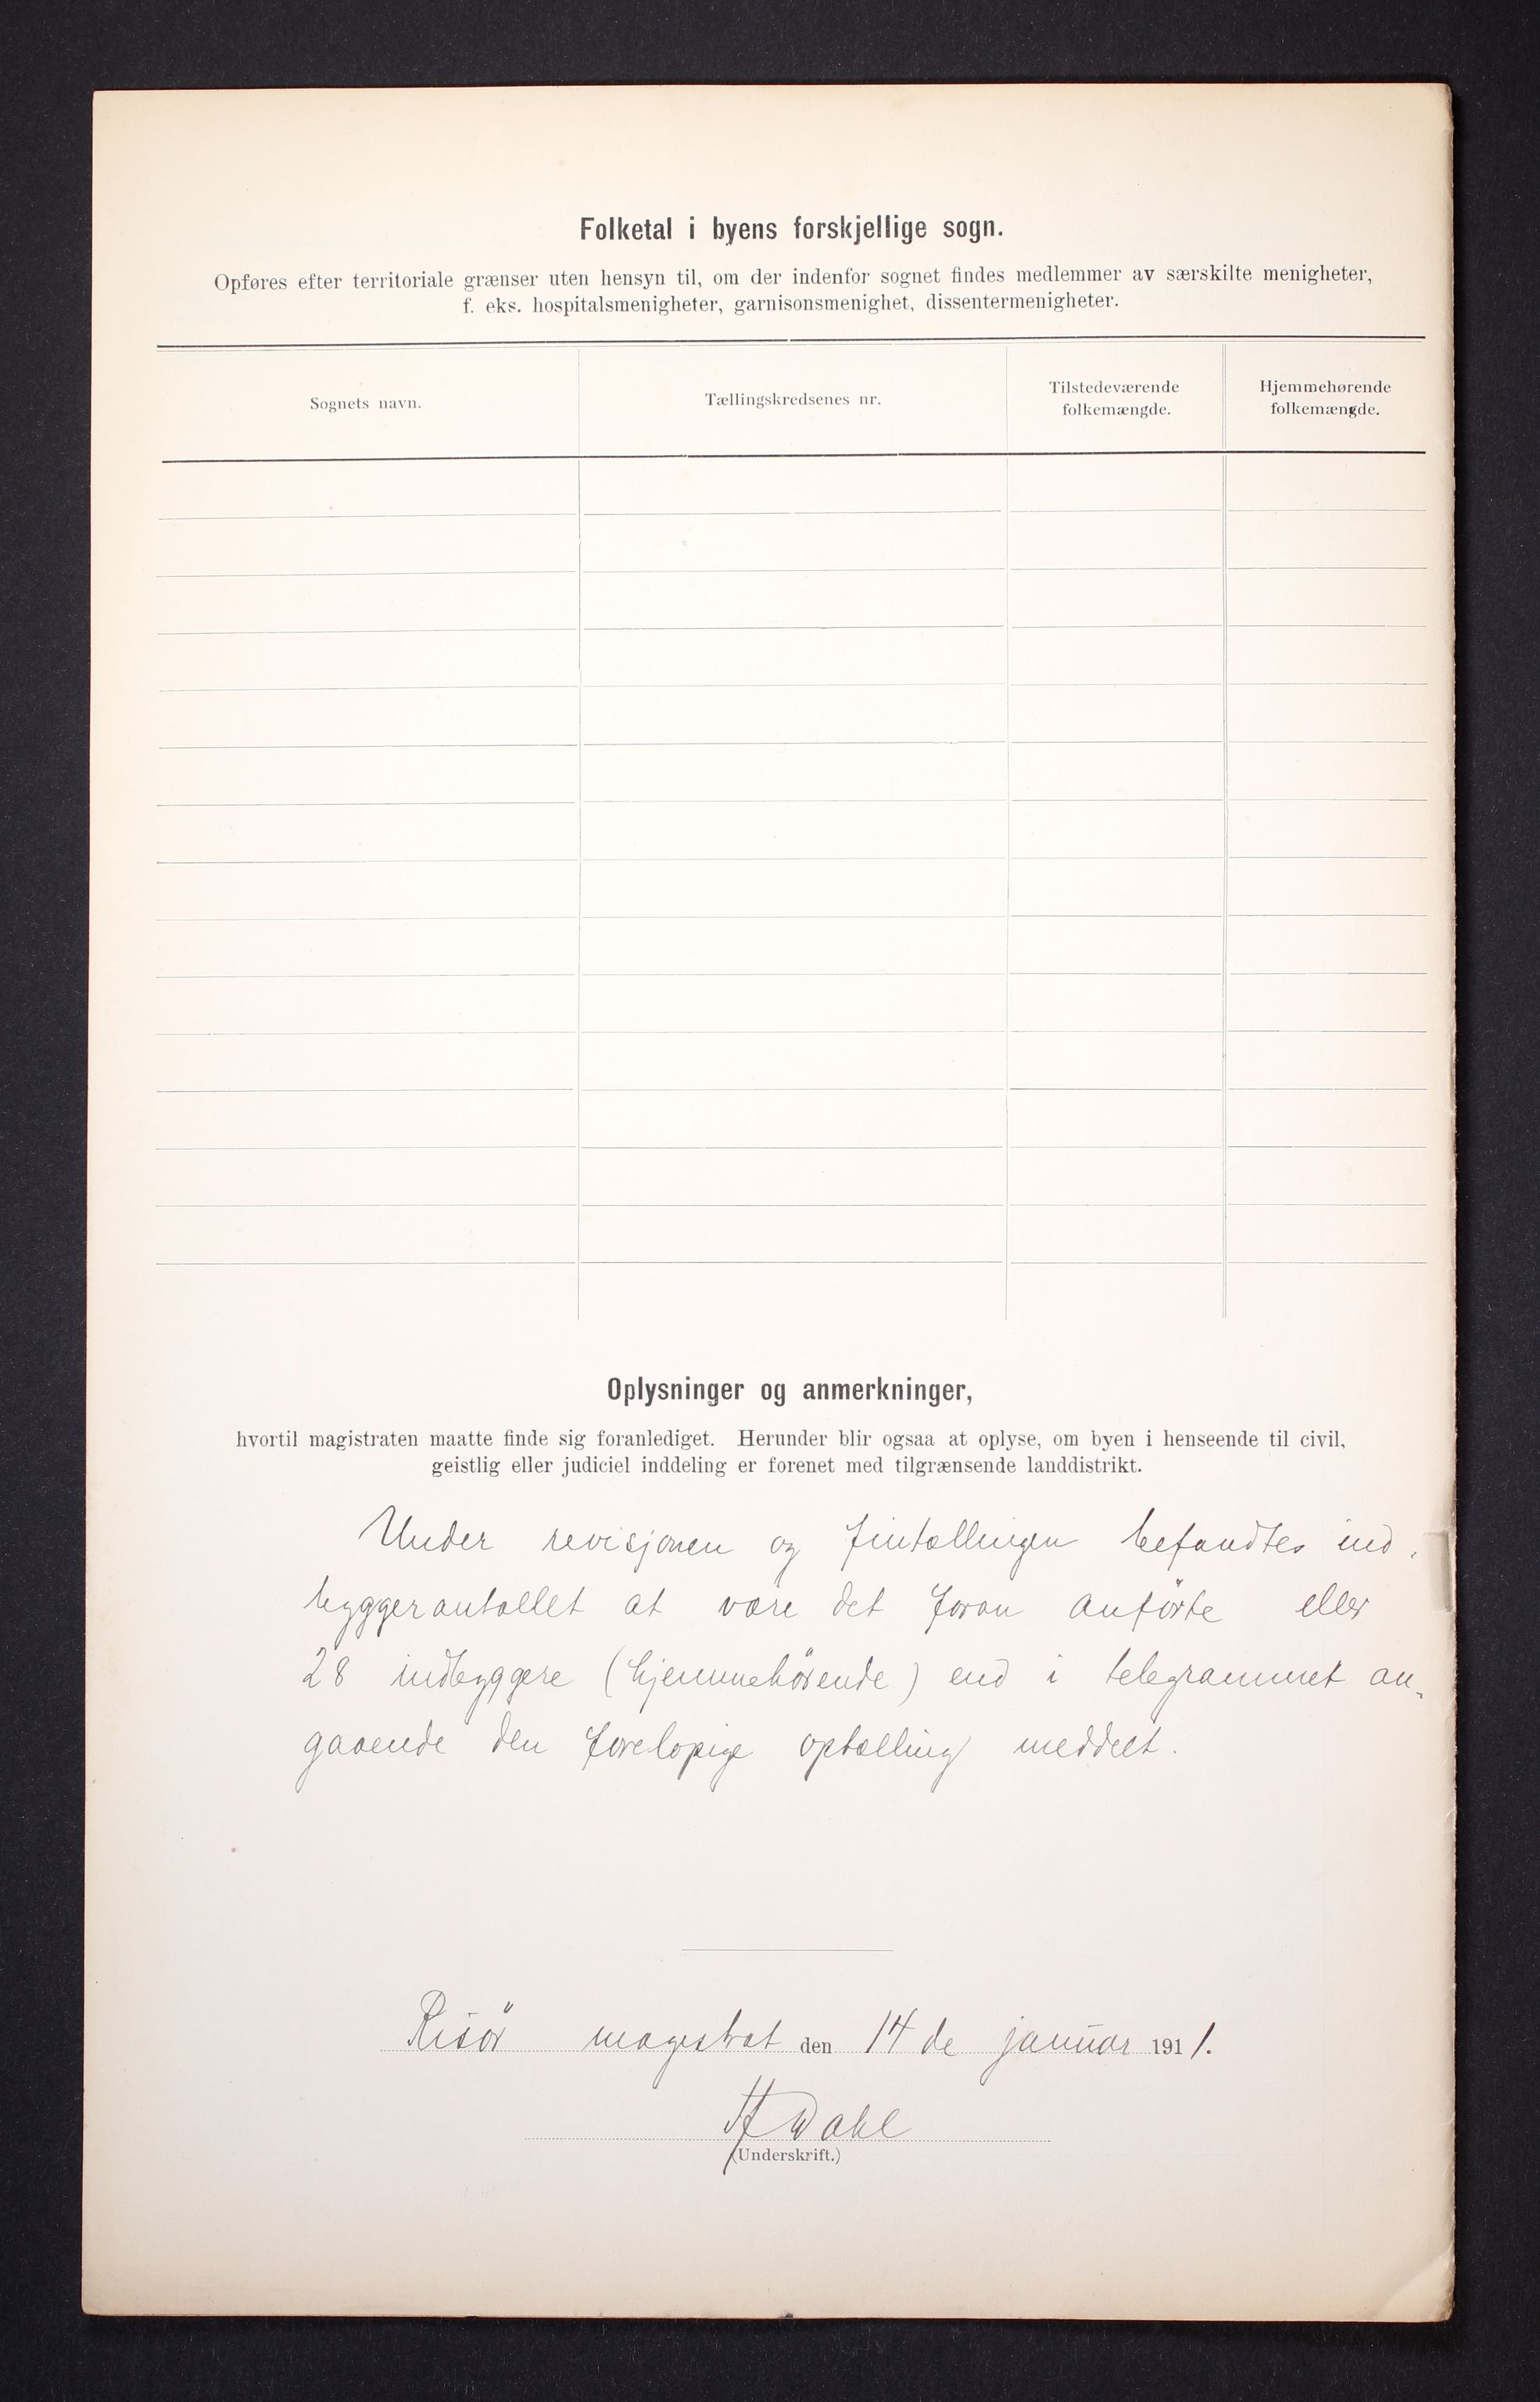 Folketal i byens forskjellige sogn.
Opføres efter territoriale grænser uten hensyn til, om der indenfor sognet findes medlemmer av særskilte menigheter,
f. eks. hospitalsmenigheter, garnisonsmenighet, dissentermenigheter.
Sognets navn.
Tællingskredsenes nr.
Tilstedeværende
folkemængde.
Hjemmehørende
folkemængde.
Oplysninger og anmerkninger,
hvortil magistraten maatte finde sig foranlediget. Herunder blir ogsaa at oplyse, om byen i henseende til civil,
geistlig eller judiciel inddeling er forenet med tilgrænsende landdistrikt.
Under revisjonen og fintællingen befandtes ind-
byggerantallet at være det foran anførte eller
28 indbyggere (hjemmehørende) end i telegrammet an-
gaaende den foreløpige optælling meddelt.
Risør magistrat den 14de januar 1911.
H Dahl
(Underskrift.)